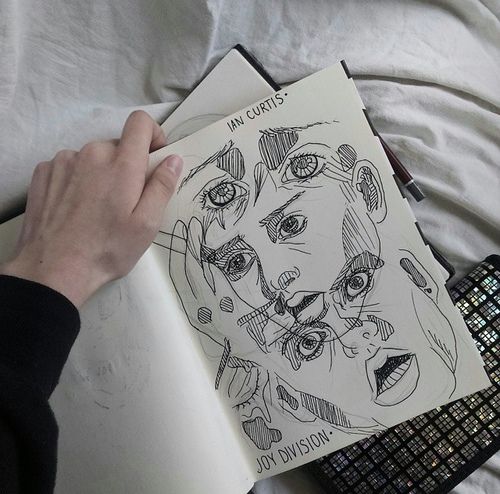 IAN CURTIS.
JOY DIVISION.